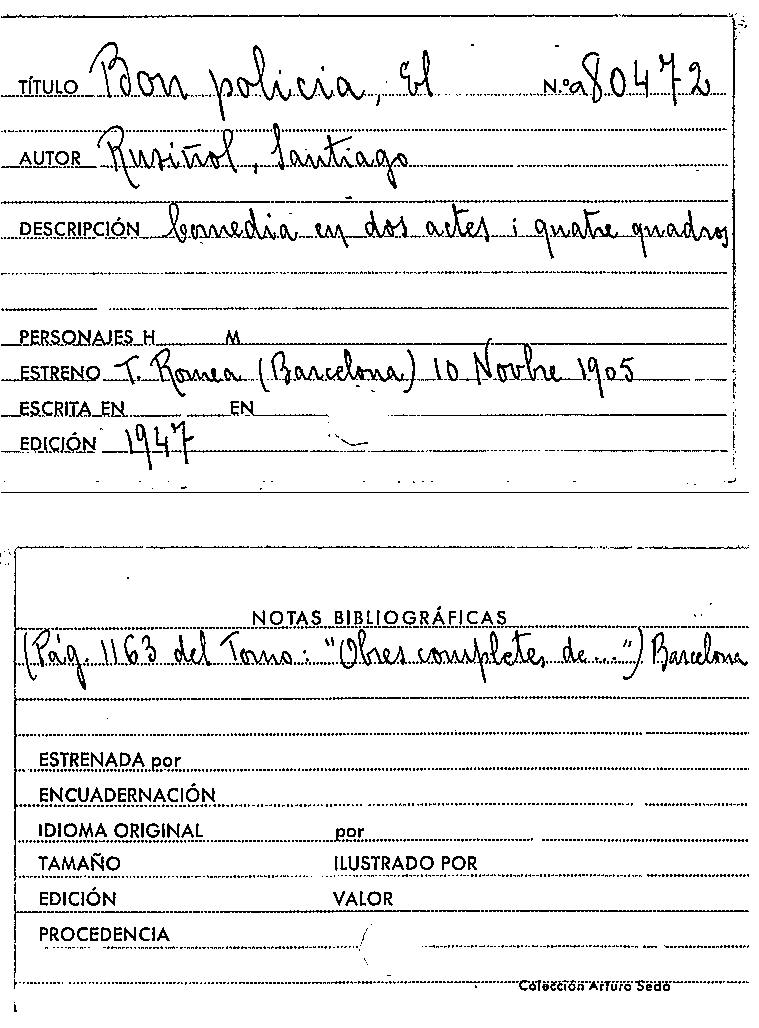 TÍTULO Bon policia, El N.º a80472
AUTOR Rusiñol, Santiago
DESCRIPCIÓN Comedia en dos actes i quatre quadros
PERSONAJES H M
ESTRENO T. Romea (Barcelona) 10 Novbre 1905
ESCRITA EN EN
EDICIÓN 1947
NOTAS BIBLIOGRÁFICAS
(Pág. 1163 del Tomo: "Obres completes de...") Barcelona
ESTRENADA por
ENCUADERNACIÓN
IDIOMA ORIGINAL por
TAMAÑO ILUSTRADO POR
EDICIÓN VALOR
PROCEDENCIA
Colección Arturo Sedó